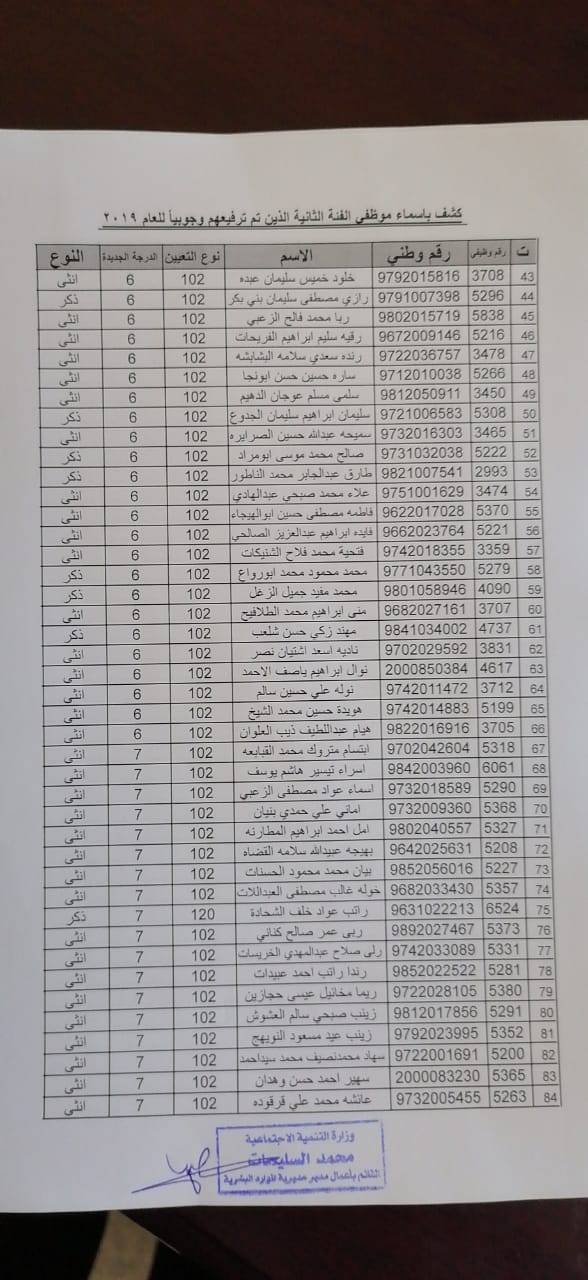 كشف باسماء موظفي الفئة الثانية الذين تم ترفيعهم وجوبياً للعام ٢٠١٩
ت رقم وظيفي رقم وطني الاسم نوع التعيين الدرجة الجديدة النوع
43 3708 9792015816 خلود خميس سليمان عبده 102 6 انثى
44 5296 9791007398 رازي مصطفى سليمان بني بكر 102 6 ذكر
45 5838 9802015719 ربا محمد فالح الزعبي 102 6 انثى
46 5216 9672009146 رقيه سليم ابراهيم الفريحات 102 6 انثى
47 3478 9722036757 رنده سعدي سلامه البشابشه 102 6 انثى
48 5266 9712010038 ساره حسين حسن ابونجا 102 6 انثى
49 3450 9812050911 سلمى مسلم عوجان الدهيم 102 6 انثى
50 5308 9721006583 سليمان ابراهيم سليمان الجدوع 102 6 ذكر
51 3465 9732016303 سميحه عبدالله حسين الصرايره 102 6 انثى
52 5222 9731032038 صالح محمد موسى ابومراد 102 6 ذكر
53 2993 9821007541 طارق عبدالجابر محمد الناطور 102 6 ذكر
54 3474 9751001629 علاء محمد صبحي عبدالهادي 102 6 انثى
55 5370 9622017028 فاطمه مصطفى حسين ابوالهيجاء 102 6 انثى
56 5221 9662023764 فايده ابراهيم عبدالعزيز الصالحي 102 6 انثى
57 3359 9742018355 فتحية محمد فلاح الشنيكات 102 6 انثى
58 5279 9771043550 محمد محمود محمد ابورواع 102 6 ذكر
59 4090 9801058946 محمد مفيد جميل الزغل 102 6 ذكر
60 3707 9682027161 منى ابراهيم محمد الطلافيح 102 6 انثى
61 4737 9841034002 مهند زكي حسن شلعب 102 6 ذكر
62 3831 9702029592 ناديه اسعد اشتيان نصر 102 6 انثى
63 4617 2000850384 نوال ابراهيم ياصف الاحمد 102 6 انثى
64 3712 9742011472 نوله علي حسين سالم 102 6 انثى
65 5199 9742014883 هويدة حسين محمد الشيخ 102 6 انثى
66 3705 9822016916 هيام عبداللطيف ذيب العلوان 102 6 انثى
67 5318 9702042604 ابتسام متروك محمد القبابعه 102 7 انثى
68 6061 9842003960 اسراء تيسير هاشم يوسف 102 7 انثى
69 5290 9732018589 اسماء عواد مصطفى الزعبي 102 7 انثى
70 5368 9732009360 اماني علي حمدي بنيان 102 7 انثى
71 5327 9802040557 امل احمد ابراهيم المطارنه 102 7 انثى
72 5208 9642025631 بهيجه عبيدالله سلامه القضاه 102 7 انثى
73 5227 9852056016 بيان محمد محمود الحسنات 102 7 انثى
74 5357 9682033430 خوله غالب مصطفى العبداللات 102 7 انثى
75 6524 9631022213 راتب عواد خلف الشحادة 120 7 ذكر
76 5373 9892027467 ربى عمر صالح كناني 102 7 انثى
77 5331 9742033089 رلى صلاح عبدالمهدي الخريسات 102 7 انثى
78 5281 9852022522 رندا راتب احمد عبيدات 102 7 انثى
79 5380 9722028105 ريما مخائيل عيسى حجازين 102 7 انثى
80 5291 9812017856 زينب صبحي سالم العشوش 102 7 انثى
81 5352 9792023995 زينب عيد مسعود النويهج 102 7 انثى
82 5200 9722001691 سهاد محمدنصيف محمد سيداحمد 102 7 انثى
83 5365 2000083230 سهير احمد حسن وهدان 102 7 انثى
84 5263 9732005455 عائشه محمد علي قرقوده 102 7 انثى
وزارة التنمية الاجتماعية
محمد السليحات
القائم بأعمال مدير مديرية الموارد البشرية